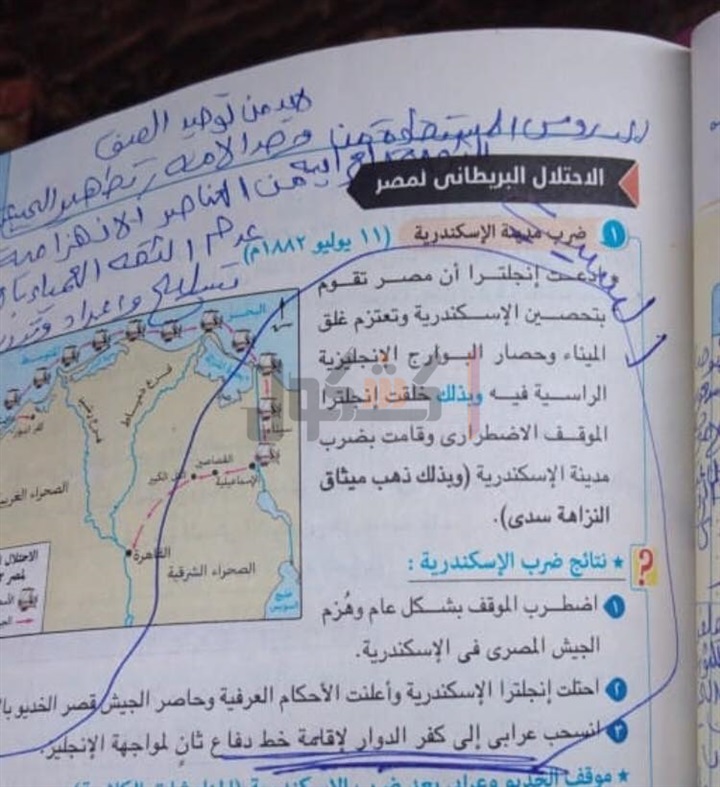 لابد من توحيد الصف
الدروس المستفادة من
وحد الأمه, تطهير
من العناصر الانهزامية
عدم الثقه العمياء
تسليح واعداد
الاحتلال البريطانى لمصر
١ ضرب مدينة الإسكندرية (١١ يوليو ١٨٨٢م)
وادعت إنجلترا أن مصر تقوم
بتحصين الإسكندرية وتعتزم غلق
الميناء وحصار البوارج الإنجليزية
الراسية فيه وبذلك خلقت إنجلترا
الموقف الاضطرارى وقامت بضرب
مدينة الإسكندرية (وبذلك ذهب ميثاق
النزاهة سدى).
البحر
فرع دمياط
فرع رشيد
القصاصين
التل الكبير
الإسماعيلية
القاهرة
الصحراء الغربية
الصحراء الشرقية
خليج السويس
الاحتلال
لمصر
كشكول
؟ ★ نتائج ضرب الإسكندرية :
١ اضطرب الموقف بشكل عام وهُزم
الجيش المصرى فى الإسكندرية.
٢ احتلت إنجلترا الإسكندرية وأعلنت الأحكام العرفية وحاصر الجيش قصر الخديو
٣ انسحب عرابى إلى كفر الدوار لإقامة خط دفاع ثانٍ لمواجهة الإنجليز.
★ موقف الخديو وعرابى بعد ضرب الإسكندرية